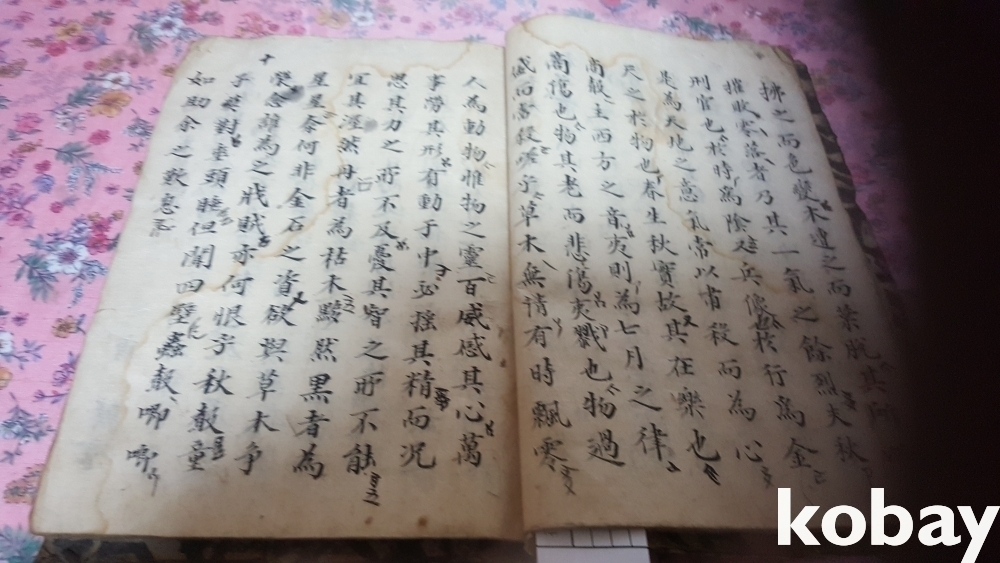 拂之而色變木遭之而葉脫其所
摧敗零落者乃其一氣之餘烈夫秋
刑官也於時爲陰又兵像於行爲金
是為天地之意氣常以肅殺而為心
天之於物也春生秋實故其在樂也
商聲主西方之音夷則為七月之律
商傷也物其老而悲傷夷戮也物過
盛而當殺嗟乎草木無情有時飄零
人為動物惟物之靈百感感其心萬
事勞其形有動于中必搖其精而況
思其力之所不及憂其智之所不能
宜其渥然丹者為枯木黟然黑者為
星星奈何非金石之資欲與草木爭
榮念誰為之戕賊亦何恨乎秋聲童
子莫對垂頭睡但聞四壁蟲聲唧唧
如助余之歎息
kobay